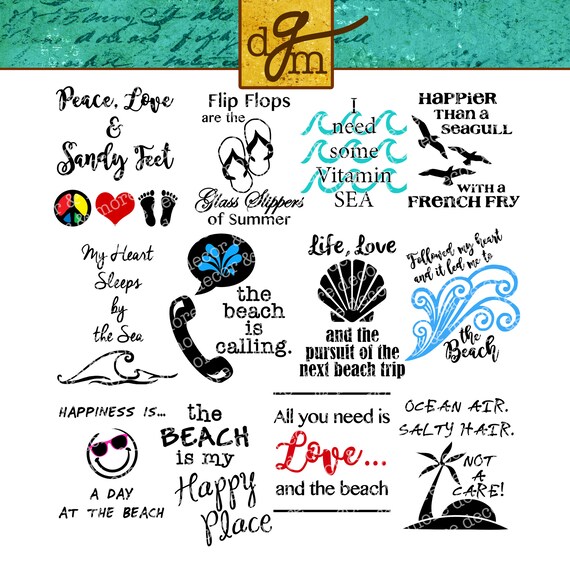 dgm
Peace, Love
&
Sandy Feet
Flip Flops
are the
Glass Slippers
of Summer
I
need
some
Vitamin
SEA
HAPPIER
THAN A
SEAGULL
WITH A
FRENCH FRY
My Heart
Sleeps
by
the Sea
the
beach
is
calling.
Life, Love
and the
pursuit of the
next beach trip
Followed my heart
and it led me to
the
Beach
HAPPINESS IS...
A DAY
AT THE BEACH
the
BEACH
is my
Happy
Place
All you need is
Love...
and the beach
OCEAN AIR.
SALTY HAIR.
NOT
A
CARE!